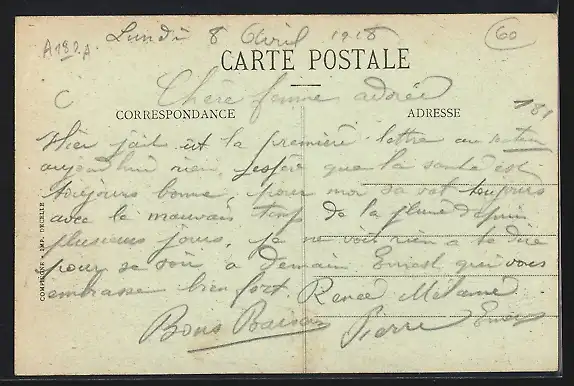 A 182 A
Lundi 8 Avril 1918
60
CARTE POSTALE
C
Chère femme adorée
CORRESPONDANCE
ADRESSE
181
Hier jai eut la première lettre au retour
aujourdhui rien, jespère que la santé est
toujours bonne, pour moi sa vat toujours
avec le mauvais temp de la pluie depuis
plusieurs jours, je ne voit rien a te dire
pour se soir a Demain Ernest qui vous
embrasse bien fort. Renée Mélanie
Bons Baisers Pierre
COMPIÈGNE - IMP. DECELLE